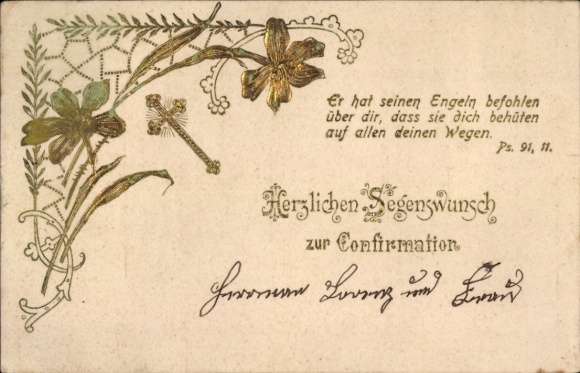 Er hat seinen Engeln befohlen
über dir, dass sie dich behüten
auf allen deinen Wegen.
Ps. 91, 11.
Herzlichen Segenswunsch
zur Confirmation
Herrman Lorenz und Frau